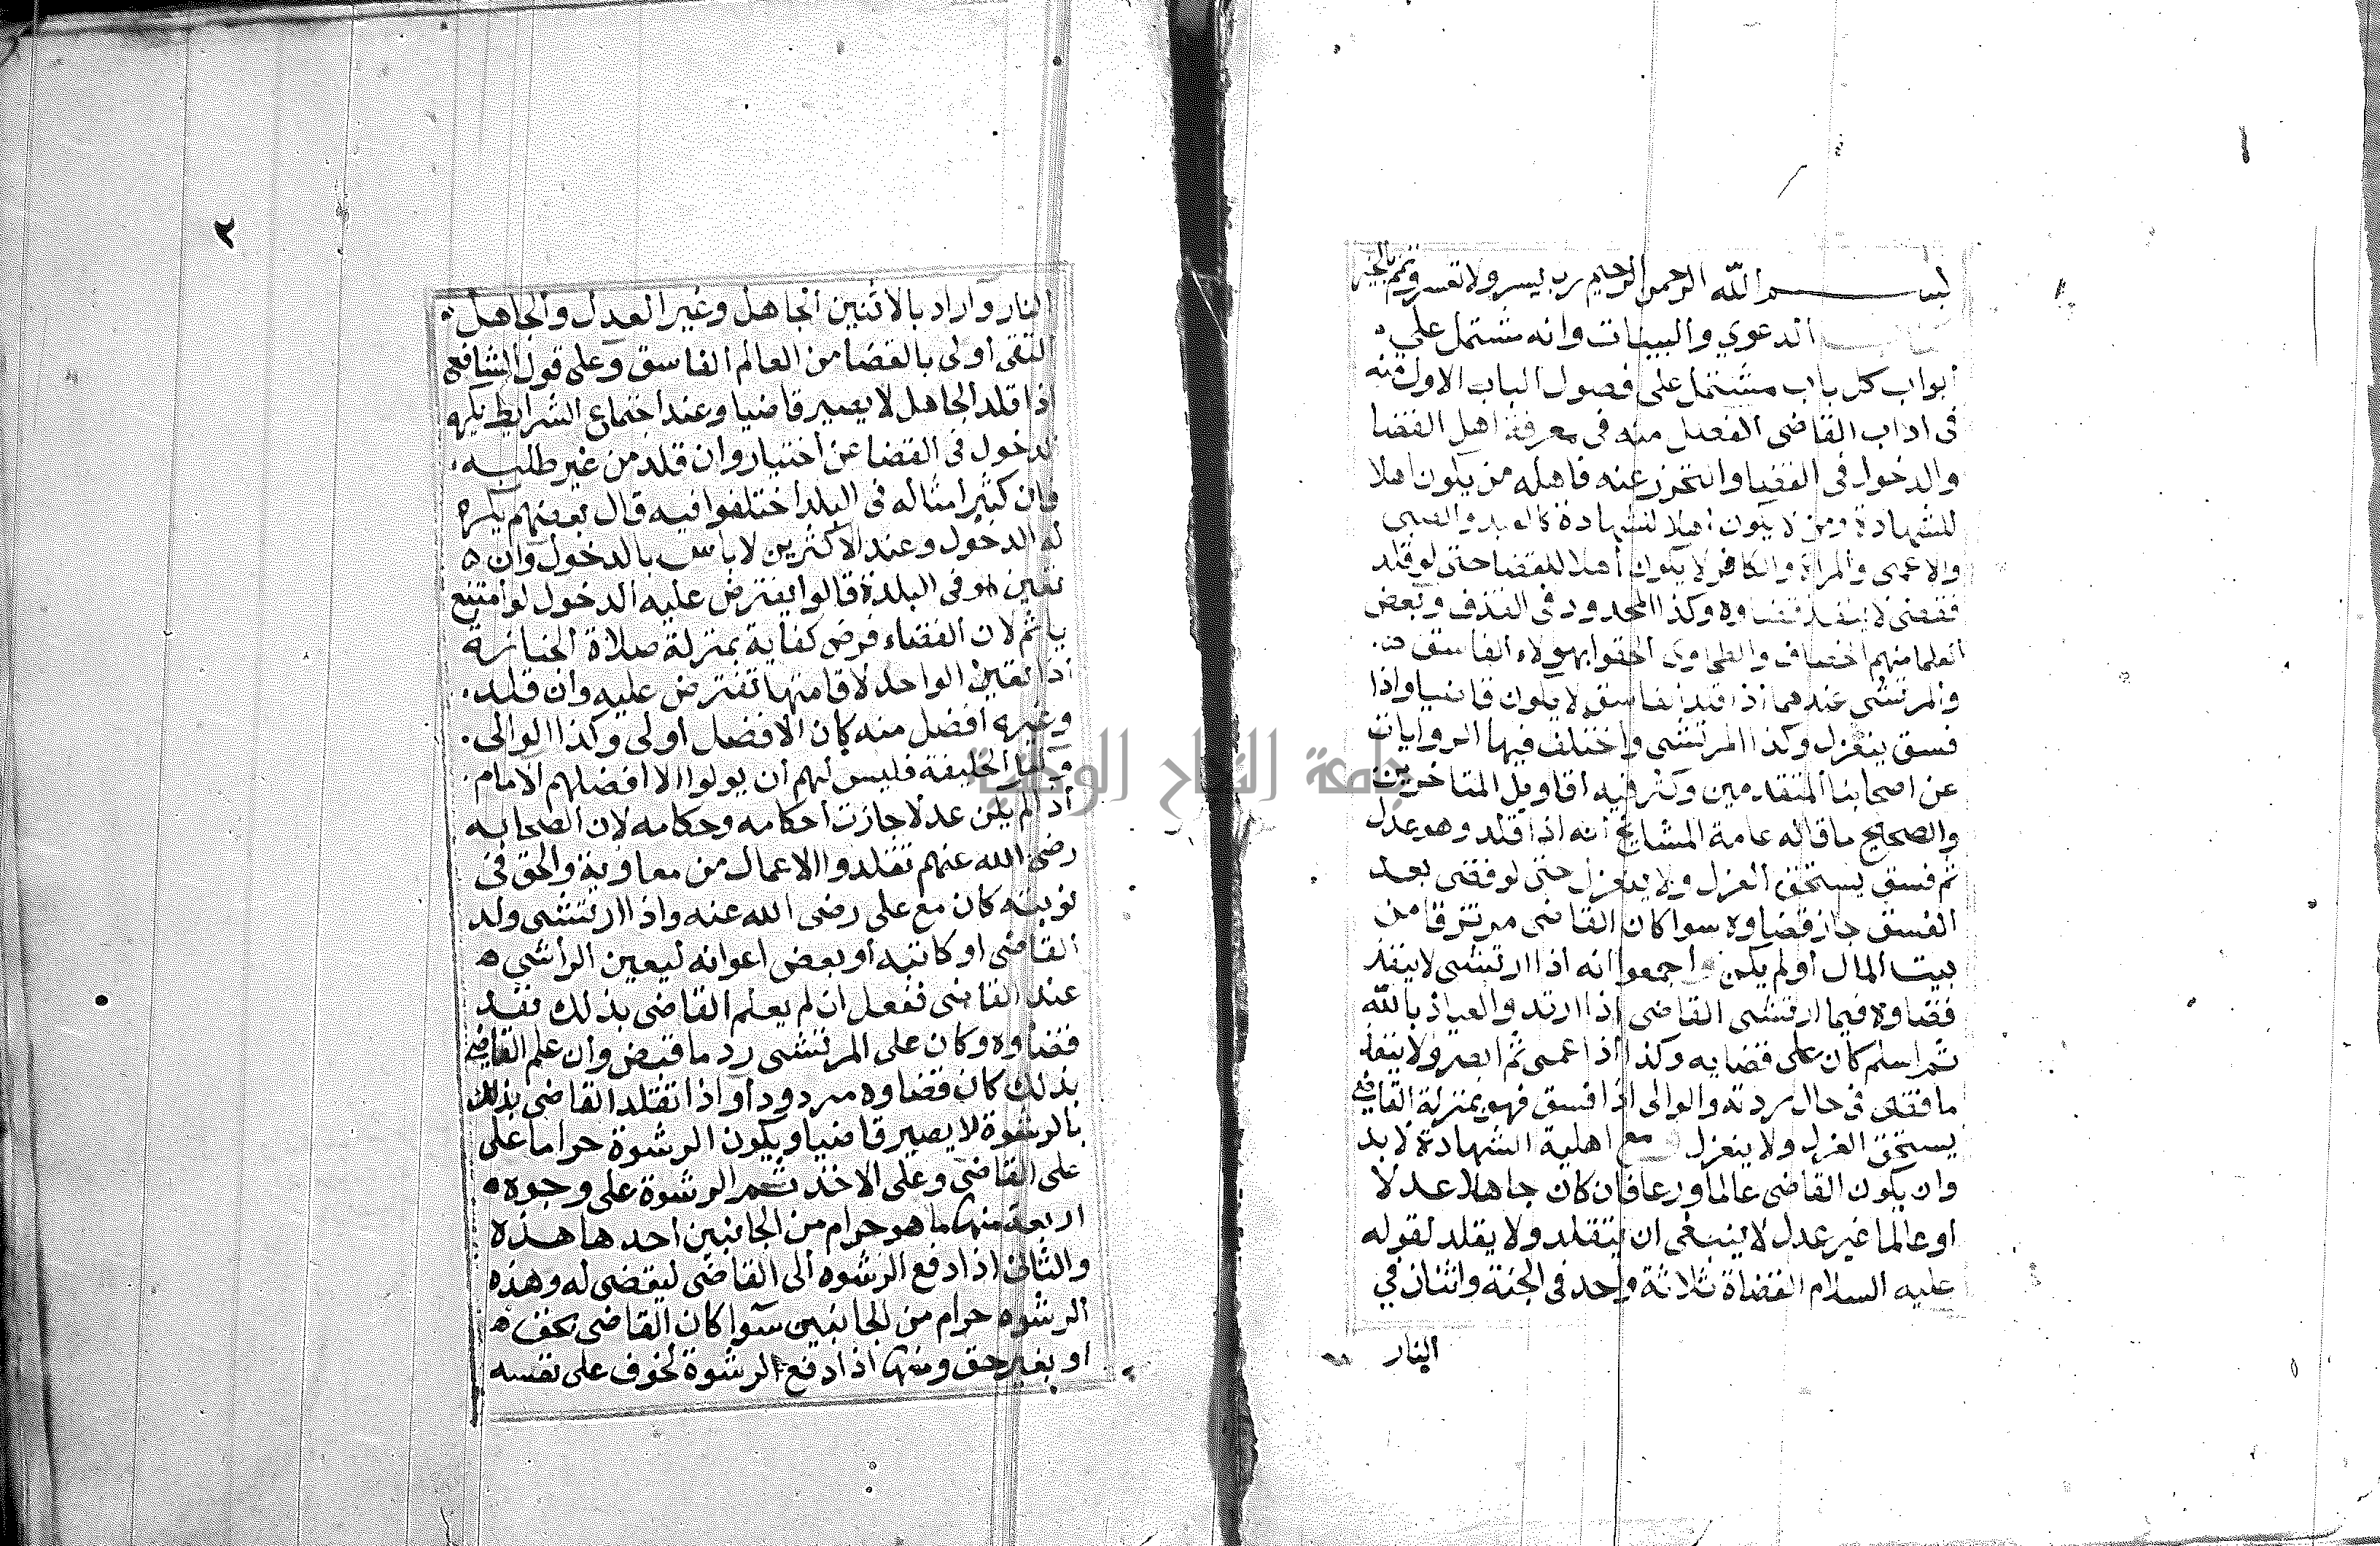 بسم الله الرحمن الرحيم رب يسر ولا تعسر وتمم بالخير
الدعوي والبينات وانه مشتمل علي
ابواب كل باب مشتمل على فصول الباب الاول منه
في اداب القاضي الفصل منه في معرفة اهل القضا
والدخول في القضا والتحرز عنه فاهله من يكون اهلا
للشهادة ومن لا يكون اهلا للشهادة كالعبد والصبي
والاعمى والمراة والكافر لا يكون اهلا للقضا حتى لو قلد
فقضى لا ينفذ قضاوه وكذا المحدود في القذف وبعض
العلما منهم الخصاف والطحاوي الحقوا بهولاء الفاسق
والمرتشي عندهما اذا قلد الفاسق لا يكون قاضيا واذا
فسق ينعزل وكذا المرتشي واختلف فيها الروايات
عن اصحابنا المتقدمين وكثر فيه اقاويل المتاخرين
والصحيح ما قاله عامة المشايخ انه اذا قلد وهو عدل
ثم فسق يستحق العزل ولا ينعزل حتى لو قضى بعد
الفسق جاز قضاوه سوا كان القاضي مرتزقا من
بيت المال او لم يكن واجمعوا انه اذا ارتشى لا ينفذ
قضاوه فيما ارتشى القاضي اذا ارتد والعياذ بالله
ثم اسلم كان على قضايه وكذا اذا عمى ثم ابصر ولا ينفذ
ما قضى في حال ردته والوالى اذا فسق فهو بمنزلة القاضي
يستحق العزل ولا ينعزل مع اهلية الشهادة لا بد
وان يكون القاضي عالما ورعا فان كان جاهلا عدلا
او عالما غير عدل لا ينبغي ان يتقلد ولا يقلد لقوله
عليه السلام القضاة ثلاثة واحد في الجنة واثنان في
النار
٢
النار واراد بالاثنين الجاهل وغير العدل والجاهل
التقى اولى بالقضا من العالم الفاسق وعلى قول الشافعي
اذا قلد الجاهل لا يصير قاضيا وعند اجتماع الشرايط يكره
الدخول في القضا عن اختيار وان قلد من غير طلبه
وان كثير امثاله في البلد اختلفوا فيه قال بعضهم يكره
له الدخول وعند الاكثرين لا باس بالدخول وان
تعين هو في البلدة قالوا يفترض عليه الدخول لو امتنع
ياثم لان القضاء فرض كفاية بمنزلة صلاة الجنازة
اذا تعين الواحد لاقامتها تفترض عليه وان قلد
وغيره افضل منه كان الافضل اولى وكذا الوالى
واما الخليفة فليس لهم ان يولوا الا افضلهم الامام
اذا لم يكن عدلا جازت احكامه وحكامه لان الصحابه
رضي الله عنهم تقلدوا الاعمال من معاوية والحق في
نوبته كان مع على رضى الله عنه واذا ارتشى ولد
القاضي او كاتبه او بعض اعوانه ليعين الراشي
عند القاضي ففعل ان لم يعلم القاضي بذلك نفذ
قضاوه وكان على المرتشى رد ما قبض وان علم القاضي
بذلك كان قضاوه مردودا واذا تقلد القاضي بذلك
بالرشوة لا يصير قاضيا ويكون الرشوة حراما على
على القاضي وعلى الاخذ ثم الرشوة على وجوه
اربعة منها ما هو حرام من الجانبين احدها هذه
والثاني اذا دفع الرشوه الى القاضي ليقضى له وهذه
الرشوه حرام من الجانبين سوا كان القاضي بحق
او بغير حق ومنها اذا دفع الرشوة لخوف على نفسه
جامعة النجاح الوطنية